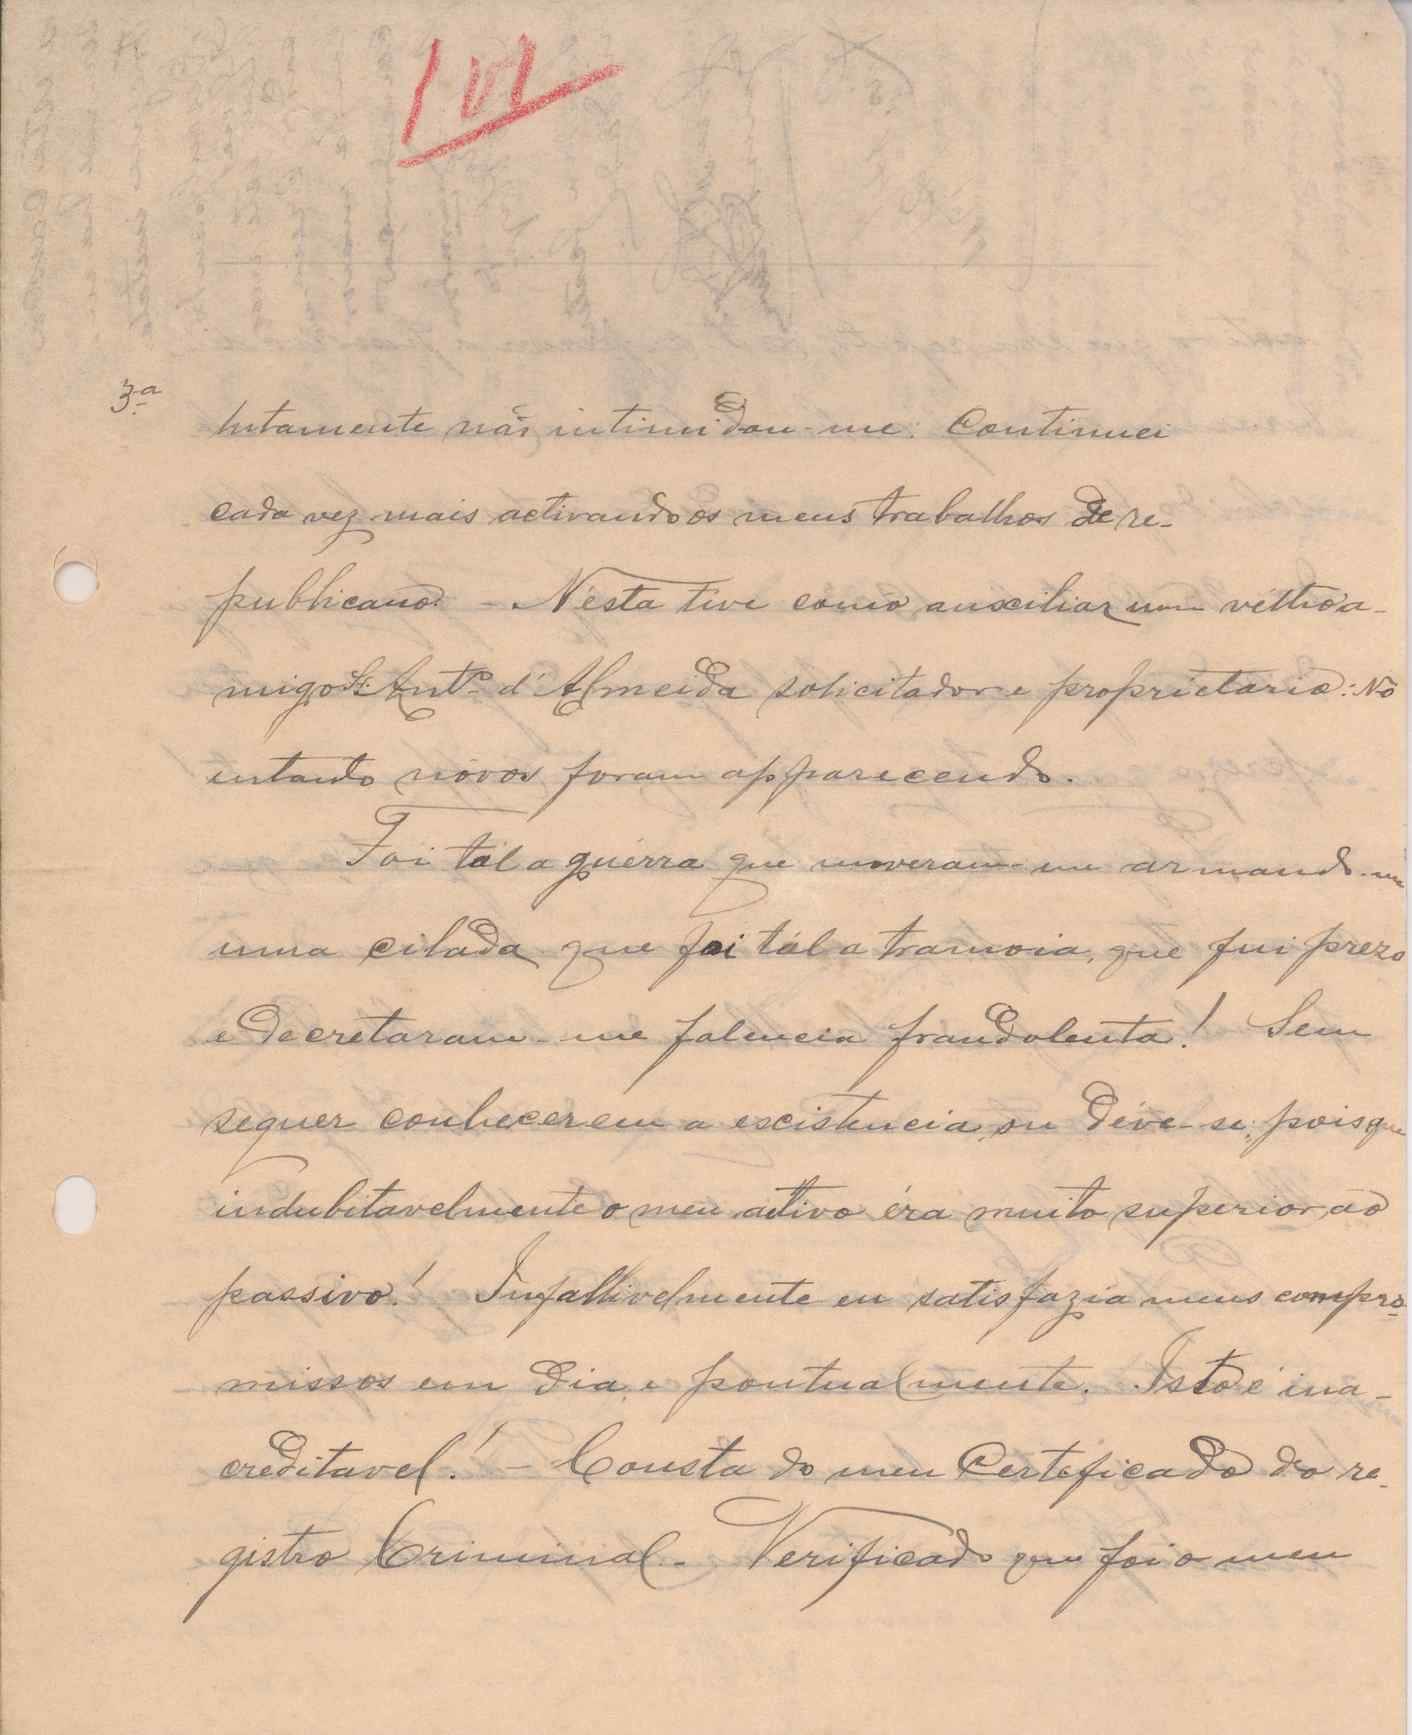 101
3ª
lutamente não intimidou-me: Continuei
cada vez mais activando os meus trabalhos de re-
publicano. - N'esta tive como auxciliar um vélho a-
migo Sr. Antº. d'Almeida solicitador e proprietario: No
entanto nóvos foram apparecendo.
Foi tál a guérra que moveram-me armando-me
uma cilada que foi tál a tramoia, que fui prezo
e decretaram-me falencia fraudolenta! Sem
sequer conhecerem a excistencia, ou déve-se; pois que
indubitavelmente o meu activo éra muito superior, ao
passivo! Infallivelmente eu satisfazia meus compro-
missos em dia, e pontualmente. Isto é ina-
creditavel! - Consta do meu Certeficado do re-
gistro Criminal - Verificado que foi o meu